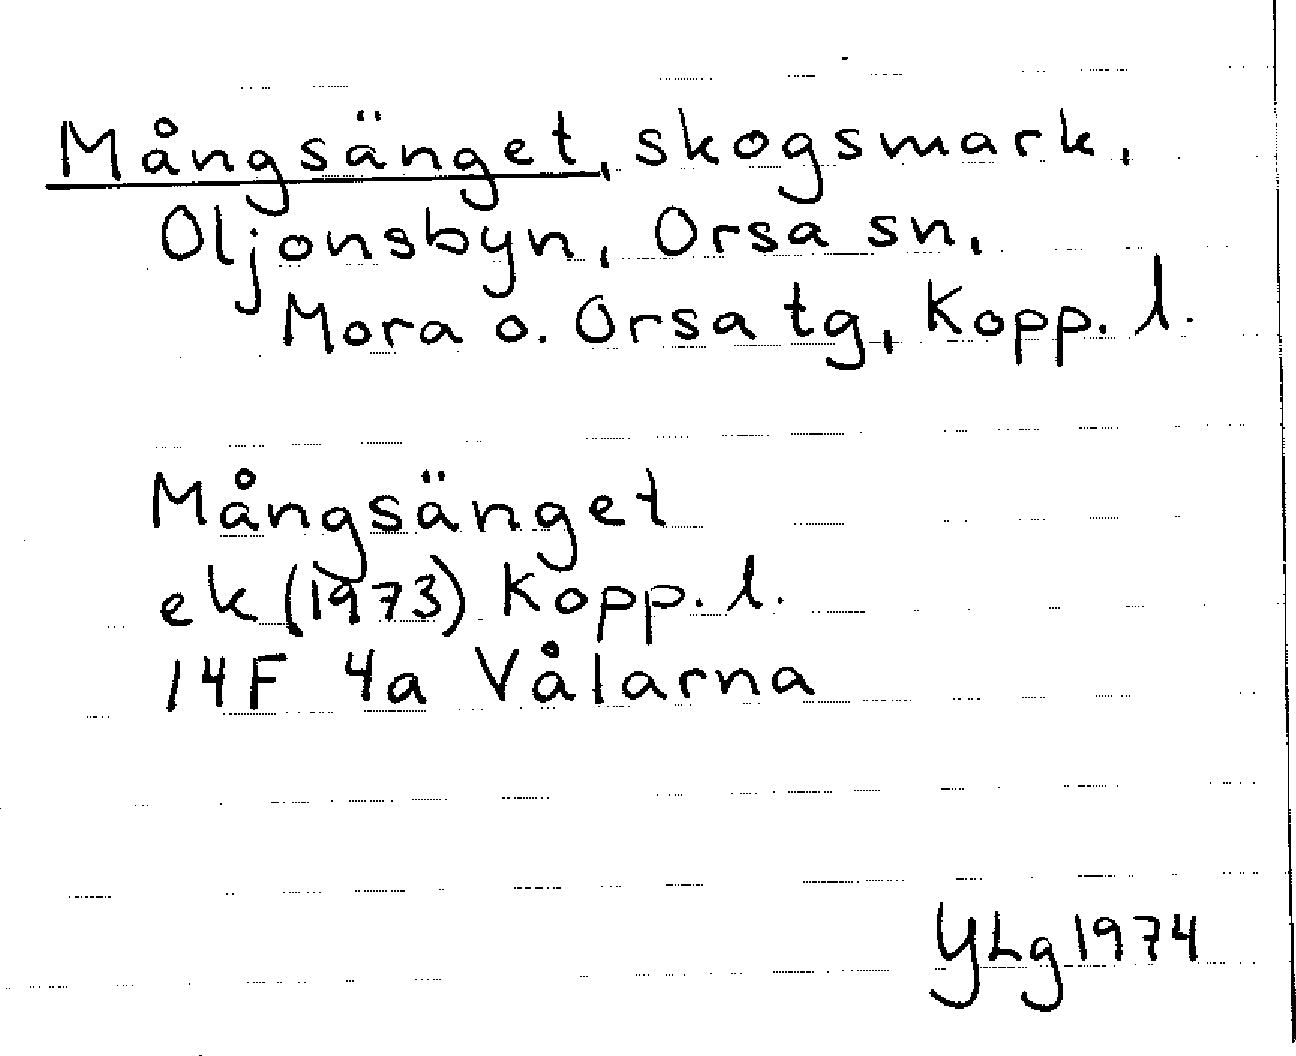 Mångsänget, skogsmark,
Oljonsbyn, Orsa sn,
Mora o. Orsa tg, Kopp. l.
Mångsänget
ek (1973) Kopp. l.
14F 4a Vålarna
YLg 1974